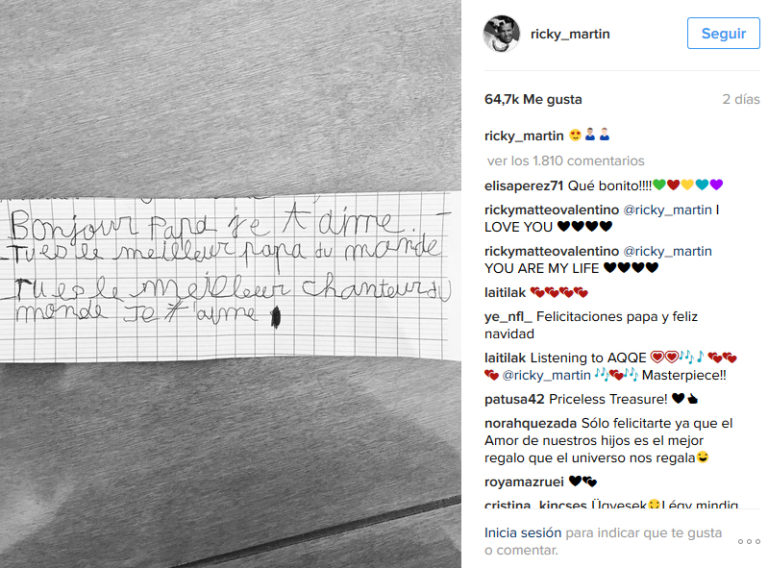 ricky_martin
Seguir
64,7k Me gusta
2 días
ricky_martin
ver los 1.810 comentarios
elisaperez71 Qué bonito!!!!
rickymatteovalentino @ricky_martin I
LOVE YOU
rickymatteovalentino @ricky_martin
YOU ARE MY LIFE
laitilak
ye_nfl_ Felicitaciones papa y feliz
navidad
laitilak Listening to AQQE
@ricky_martin Masterpiece!!
patusa42 Priceless Treasure!
norahquezada Sólo felicitarte ya que el
Amor de nuestros hijos es el mejor
regalo que el universo nos regala
royamazruei
cristina_kincses Ügyesek Légy mindig
Inicia sesión para indicar que te gusta
o comentar.
Bonjour Papa je t'aime.
Tu es le meilleur papa du monde
Tu es le meilleur chanteur du
monde Je t'aime